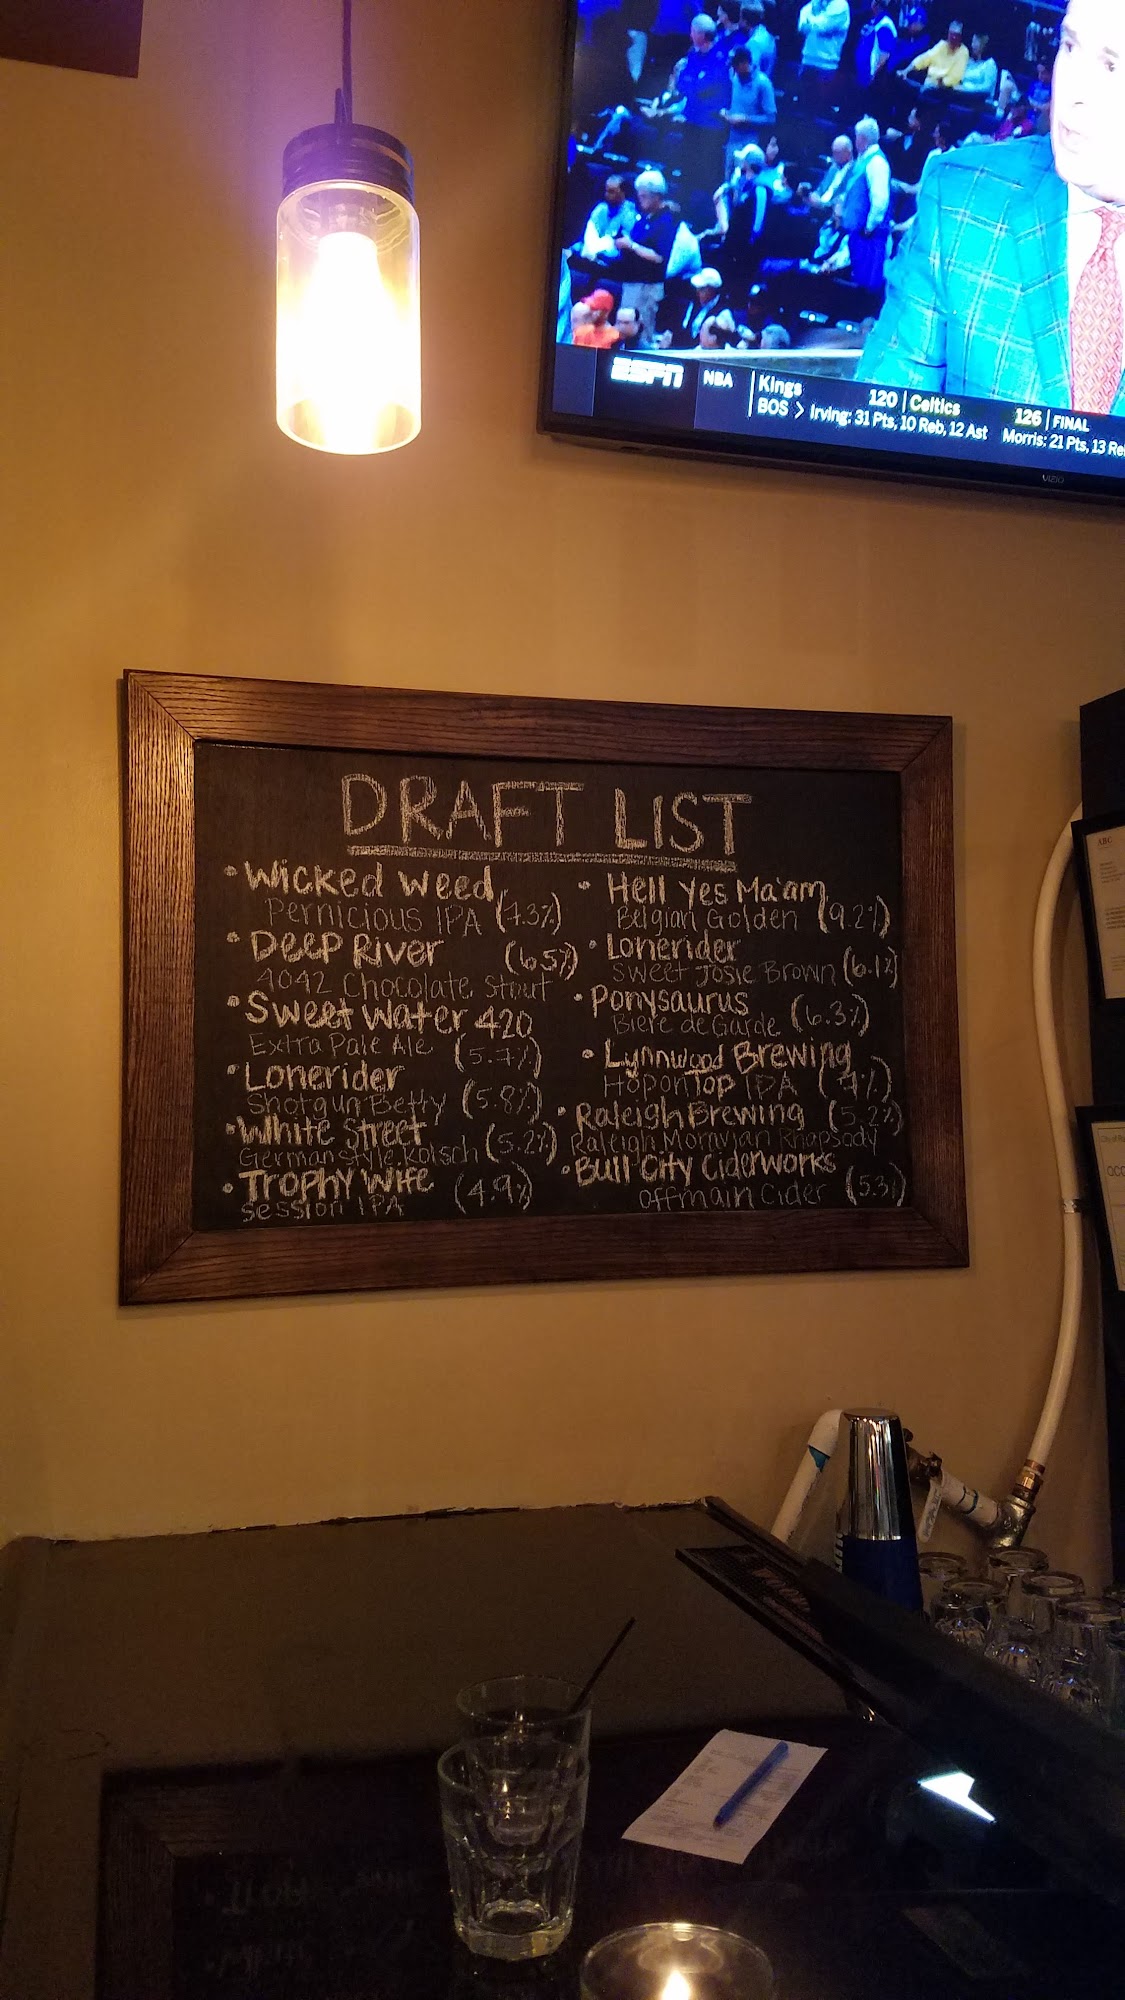 ESPN NBA Kings 120 Celtics 126 FINAL
BOS > Irving: 31 Pts, 10 Reb, 12 Ast Morris: 21 Pts, 13
VIZIO
DRAFT LIST
• Wicked Weed
Pernicious IPA (7.3%)
• Deep River (6.5%)
4042 Chocolate Stout
• Sweet Water 420
Extra Pale Ale (5.7%)
• Lonerider
Shotgun Betty (5.8%)
• White Street
German style Kolsch (5.2%)
• Trophy Wife (4.9%)
Session IPA
• Hell Yes Ma'am
Belgian Golden (9.2%)
• Lonerider
Sweet Josie Brown (6.1%)
• Ponysaurus
Biere de Garde (6.3%)
• Lynnwood Brewing
Hopon Top IPA (7%)
• Raleigh Brewing (5.2%)
Raleigh Moravian Rhapsody
• Bull City Ciderworks
Off main Cider (5.3%)
ABC